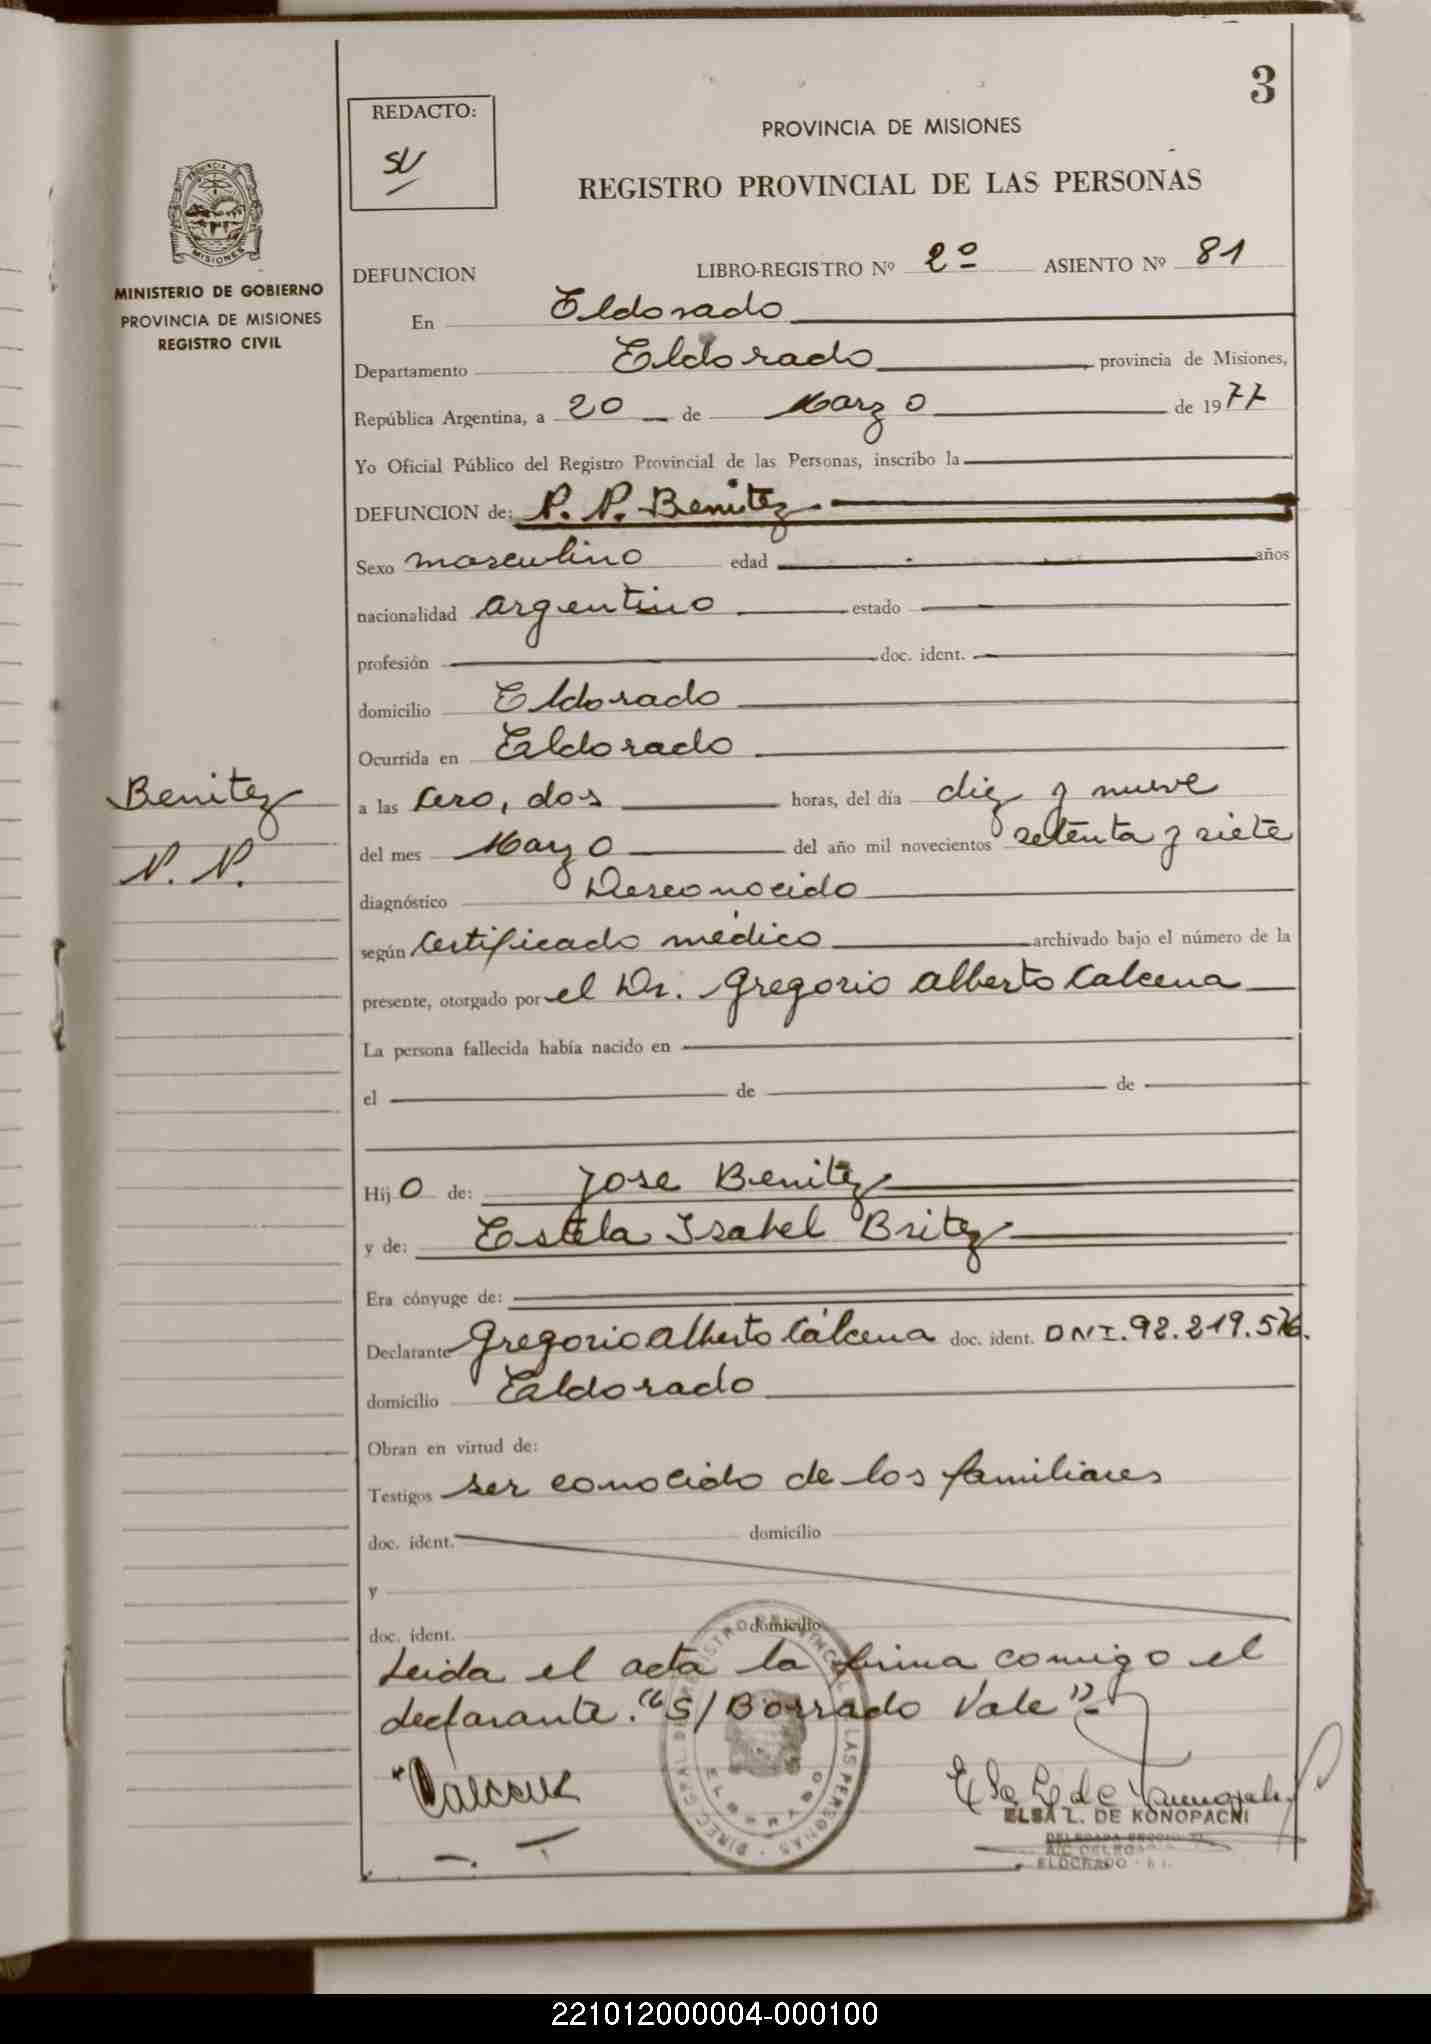 3
REDACTO:
SU
PROVINCIA DE MISIONES
REGISTRO PROVINCIAL DE LAS PERSONAS
PROVINCIA
MISIONES
MINISTERIO DE GOBIERNO
PROVINCIA DE MISIONES
REGISTRO CIVIL
DEFUNCION LIBRO-REGISTRO Nº 2º ASIENTO Nº 81
En Eldorado
Departamento Eldorado provincia de Misiones,
República Argentina, a 20 de Marzo de 1977
Yo Oficial Público del Registro Provincial de las Personas, inscribo la
DEFUNCION de: N. N. Benitez
Sexo masculino edad años
nacionalidad argentino estado
profesión doc. ident.
domicilio Eldorado
Ocurrida en Eldorado
Benitez
N. N.
a las Cero, dos horas, del día diez y nueve
del mes Marzo del año mil novecientos setenta y siete
diagnóstico Desconocido
según Certificado médico archivado bajo el número de la
presente, otorgado por el Dr. Gregorio Alberto Calcena
La persona fallecida había nacido en
el de de
Hijo de: Jose Benitez
y de: Estela Isabel Britez
Era cónyuge de:
Declarante Gregorio Alberto Cálcena doc. ident. DNI. 92.219.576.
domicilio Eldorado
Obran en virtud de:
Testigos ser conocido de los familiares
doc. ident. domicilio
y
doc. ident. domicilio
Leida el acta la firma comigo el
declarante. "S/Borrado Vale"
Calcena
DIREC. GRAL DE REGISTRO PROVINCIAL DE LAS PERSONAS
ELDORADO
ELSA L. DE KONOPACKI
ELDORADO
221012000004-000100